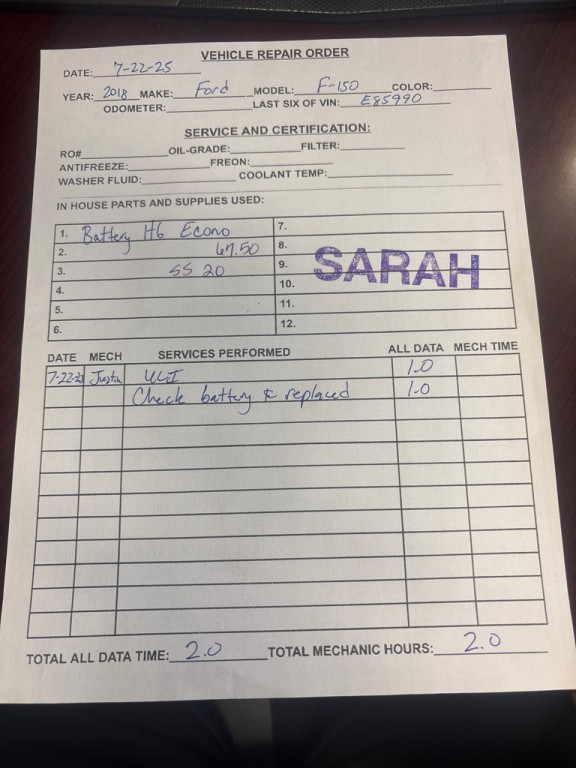 VEHICLE REPAIR ORDER
DATE: 7-22-25
YEAR: 2018 MAKE: Ford MODEL: F-150 COLOR:
ODOMETER: LAST SIX OF VIN: E85990
SERVICE AND CERTIFICATION:
RO# OIL-GRADE: FILTER:
ANTIFREEZE: FREON:
WASHER FLUID: COOLANT TEMP:
IN HOUSE PARTS AND SUPPLIES USED:
1. Battery H6 Econo 7.
2. 67.50 8.
3. SS 20 9.
SARAH
4. 10.
5. 11.
6. 12.
DATE MECH SERVICES PERFORMED ALL DATA MECH TIME
7-22-25 Justin 1.0
Check battery & replaced 1.0
TOTAL ALL DATA TIME: 2.0 TOTAL MECHANIC HOURS: 2.0